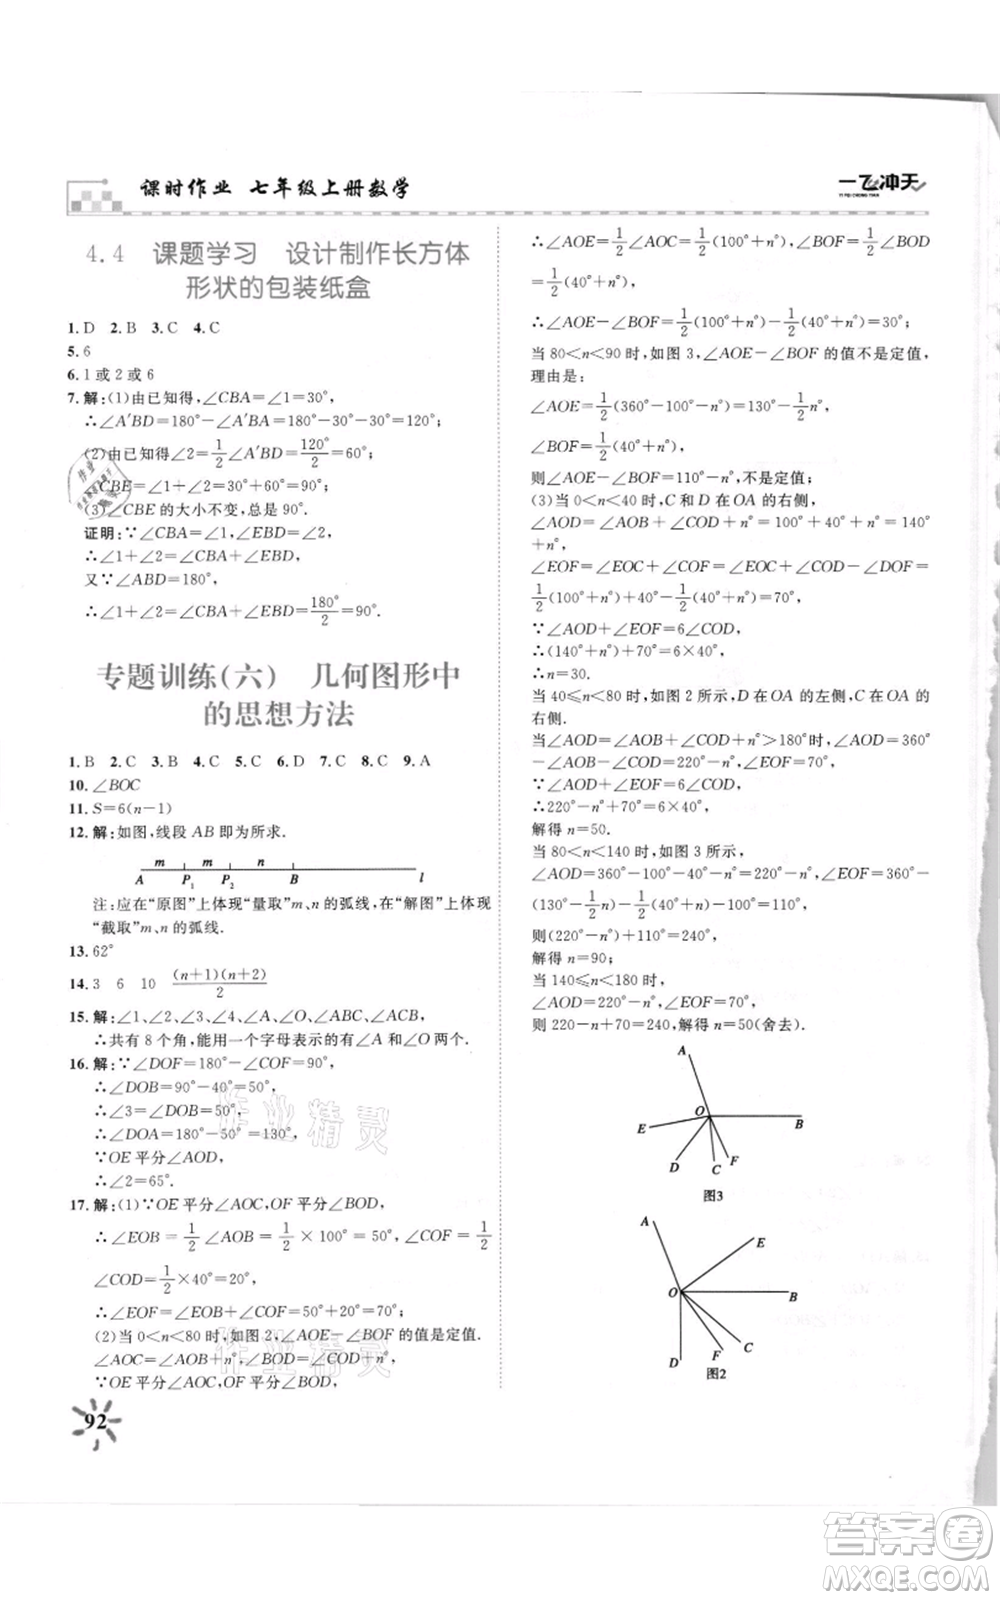 课时作业 七年级上册数学
一飞冲天
YI FEI CHONG TIAN
4.4 课题学习 设计制作长方体
形状的包装纸盒
1.D 2.B 3.C 4.C
5.6
6.1 或 2 或 6
7.解:(1)由已知得,∠CBA=∠1=30°,
∴∠A′BD=180°-∠A′BA=180°-30°-30°=120°;
(2)由已知得∠2=1/2∠A′BD=120°/2=60°,
∠CBE=∠1+∠2=30°+60°=90°;
(3)∠CBE 的大小不变,总是 90°.
证明:∵∠CBA=∠1,∠EBD=∠2,
∴∠1+∠2=∠CBA+∠EBD,
又∵∠ABD=180°,
∴∠1+∠2=∠CBA+∠EBD=180°/2=90°.
专题训练(六) 几何图形中
的思想方法
1.B 2.C 3.C 4.C 5.C 6.D 7.C 8.C 9.A
10.∠BOC
11.S=6(n-1)
12.解:如图,线段 AB 即为所求.
m m n
A P1 P2 B l
注:应在“原图”上体现“量取”m、n 的弧线,在“解图”上体现
“截取”m、n 的弧线.
13.62°
14.3 6 10 (n+1)(n+2)/2
15.解:∠1、∠2、∠3、∠4、∠A、∠O、∠ABC、∠ACB,
∴共有 8 个角,能用一个字母表示的有∠A 和∠O 两个.
16.解:∵∠DOF=180°-∠COF=90°,
∴∠DOB=90°-40°=50°,
∴∠3=∠DOB=50°,
∴∠DOA=180°-50°=130°,
∵OE 平分∠AOD,
∴∠2=65°.
17.解:(1)∵OE 平分∠AOC,OF 平分∠BOD,
∴∠EOB=1/2∠AOB=1/2×100°=50°,∠COF=1/2
∠COD=1/2×40°=20°,
∴∠EOF=∠EOB+∠COF=50°+20°=70°;
(2)当 0<n<80 时,如图 2,∠AOE-∠BOF 的值是定值.
∵∠AOC=∠AOB+n°,∠BOD=∠COD+n°,
∵OE 平分∠AOC,OF 平分∠BOD,
92
∴∠AOE=1/2∠AOC=1/2(100°+n°),∠BOF=1/2∠BOD
=1/2(40°+n°),
∴∠AOE-∠BOF=1/2(100°+n°)-1/2(40°+n°)=30°;
当 80<n<90 时,如图 3,∠AOE-∠BOF 的值不是定值,
理由是:
∠AOE=1/2(360°-100°-n°)=130°-1/2n°,
∠BOF=1/2(40°+n°),
则∠AOE-∠BOF=110°-n°,不是定值;
(3)当 0<n<40 时,C 和 D 在 OA 的右侧,
∠AOD=∠AOB+∠COD+n°=100°+40°+n°=140°
+n°,
∠EOF=∠EOC+∠COF=∠EOC+∠COD-∠DOF=
1/2(100°+n°)+40°-1/2(40°+n°)=70°,
∵∠AOD+∠EOF=6∠COD,
∴(140°+n°)+70°=6×40°,
∴n=30.
当 40≤n<80 时,如图 2 所示,D 在 OA 的左侧,C 在 OA 的
右侧.
当∠AOD=∠AOB+∠COD+n°>180°时,∠AOD=360°
-∠AOB-∠COD-n°=220°-n°,∠EOF=70°,
∵∠AOD+∠EOF=6∠COD,
∴220°-n°+70°=6×40°,
解得 n=50.
当 80<n<140 时,如图 3 所示,
∠AOD=360°-100°-40°-n°=220°-n°,∠EOF=360°-
(130°-1/2n)°-(40°+n)°+1/2(40°+n)°=110°,
则(220°-n°)+110°=240°,
解得 n=90;
当 140≤n<180 时,
∠AOD=220°-n°,∠EOF=70°,
则 220-n+70=240,解得 n=50(舍去).
A
O
E B
D C F
图3
A
E
O B
C
D F
图2
作业精灵
作业精灵
答案卷